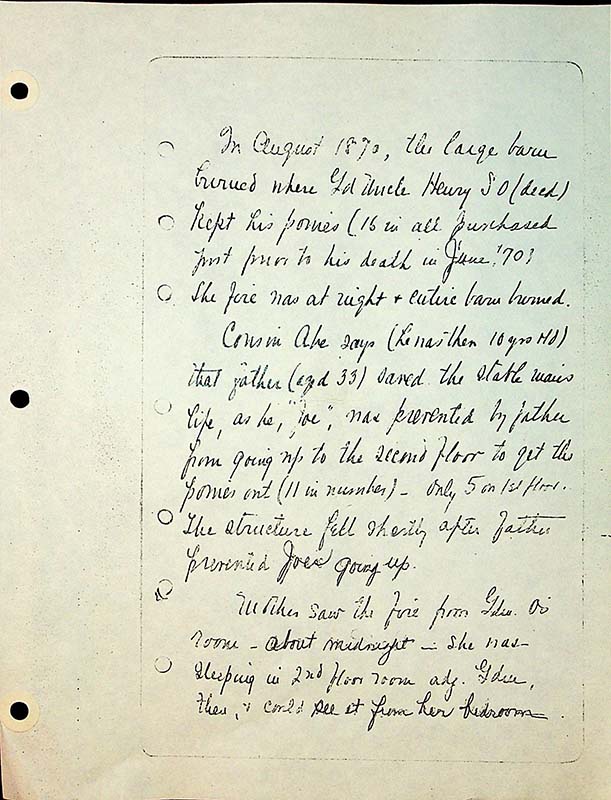 In August 1870, the large barn
burned where Gd Uncle Henry S O (decd)
kept his ponies (16 in all purchased
just prior to his death in June '70)
The fire was at night & entire barn burned.
Cousin Abe says (he was then 10 yrs old)
that father (aged 33) saved the stable mans
life, as he, "Joe", was prevented by father
from going up to the second floor to get the
ponies out (11 in number) - only 5 on 1st floor.
The structure fell shortly after father
prevented Joe going up.
Mother saw the fire from Gdm.
room - about midnight - she was
sleeping in 2nd floor room adj. Gdm,
then, & could see it from her bedroom.